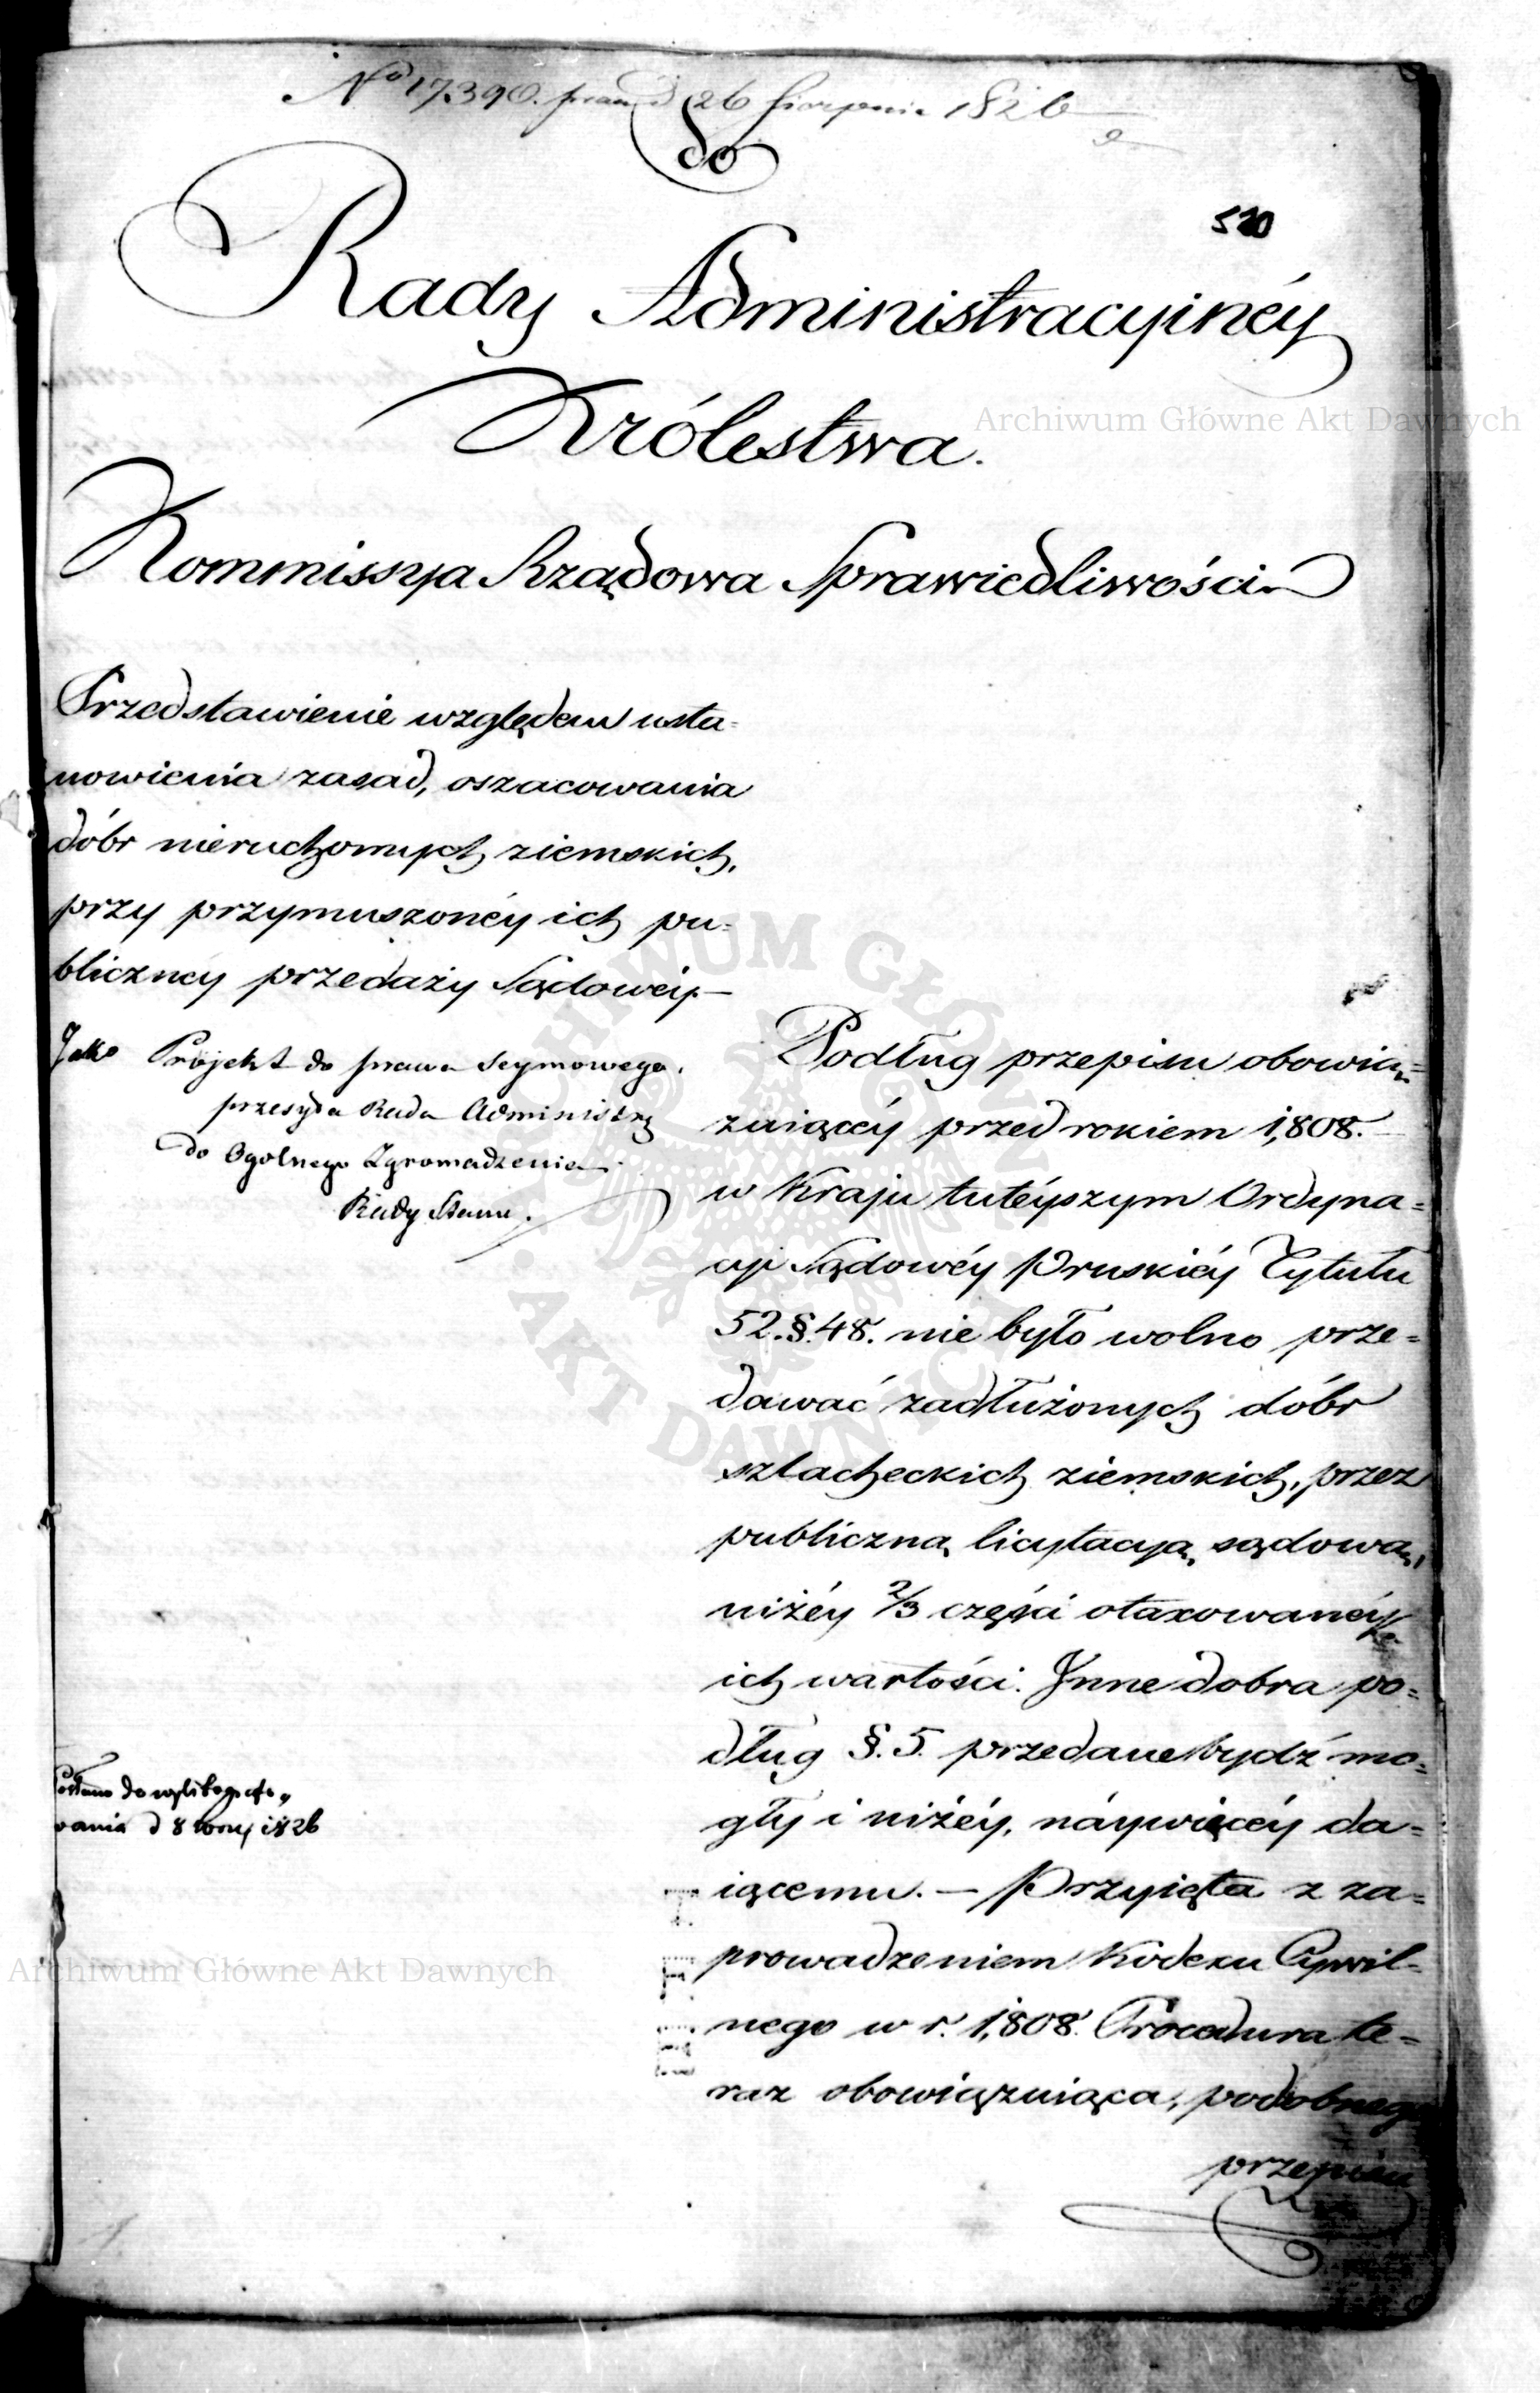 No 17390. 26 Sierpnia 1826
do
520
Rady Administracyinéy
Królestwa.
Archiwum Główne Akt Dawnych
Kommissya Rządowa Sprawiedliwości
Przedstawienie względem usta=
nowienia zasad, oszacowania
dóbr nieruchomych ziemskich,
przy przymuszonéy ich pu=
blicznéy przedaży Sądowéy.—
Jako Projekt do prawa Seymowego.
przesyła Rada Administr
do Ogolnego Zgromadzenia
Rady Stanu.
Podług przepisu obowią=
zuiącéy przed rokiem 1,808.—
w Kraju tutéyszym Ordyna=
cyi Sądowéy Pruskiéy Tytułu
52. §. 48. nie było wolno prze=
dawać zadłużonych dóbr
szlacheckich ziemskich, przez
publiczną licytacyą sądową,
niżéy 2/3 części otaxowanéy
ich wartości. Inne dobra po=
dług §. 5. przedane bydź mo=
gły i niżéy, náywięcéy da=
iącemu. — Przyięta z za=
prowadzeniem Kodexu Cywil=
nego w r. 1,808. Procedura te=
raz obowiązuiąca, podobnego
przepisu
do wylitografo„
wania d 8 1826
Archiwum Główne Akt Dawnych
ARCHIWUM GŁÓWNE · AKT DAWNYCH ·